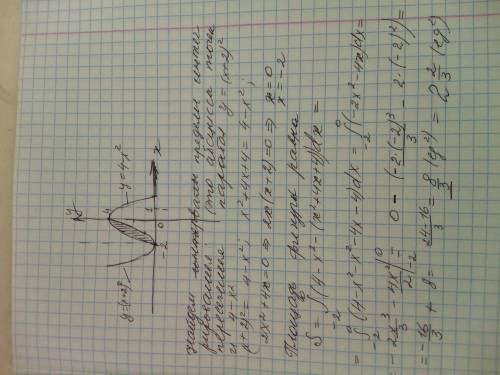 y = 4 - x²
y = (x+2)²
y
x
1
1
0
-2
Найдем пределы интег-
рирования (это абсцисса точек
пересечения парабол y = (x+2)²
и 4 - x²
(x+2)² = 4 - x²; x² + 4x + 4 = 4 - x²;
2x² + 4x = 0 ⇒ 2x(x+2) = 0 ⇒ x = 0
x = -2
Площадь фигуры равна
S = ∫₋₂⁰ (4 - x² - (x² + 4x + 4))dx =
= ∫₋₂⁰ (4 - x² - x² - 4x - 4)dx = ∫₋₂⁰ (-2x² - 4x)dx =
= - 2x³/3 - 4x²/2 |₋₂⁰ = 0 - (-2·(-2)³/3 - 2·(-2)²) =
= - 16/3 + 8 = 24-16/3 = 8/3 (ед²) = 2 2/3 (ед²)